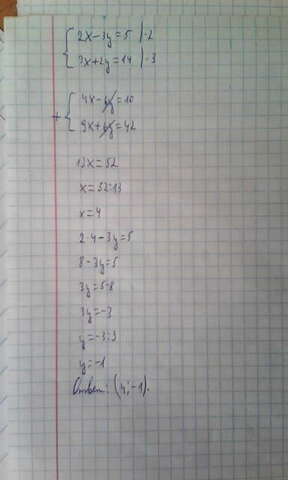 { 2x-3y=5 |·2
{ 3x+2y=14 |·3
+ { 4x-6y=10
{ 9x+6y=42
13x=52
x=52:13
x=4
2·4-3y=5
8-3y=5
3y=5-8
3y=-3
y=-3:3
y=-1
Ответ: (4;-1).